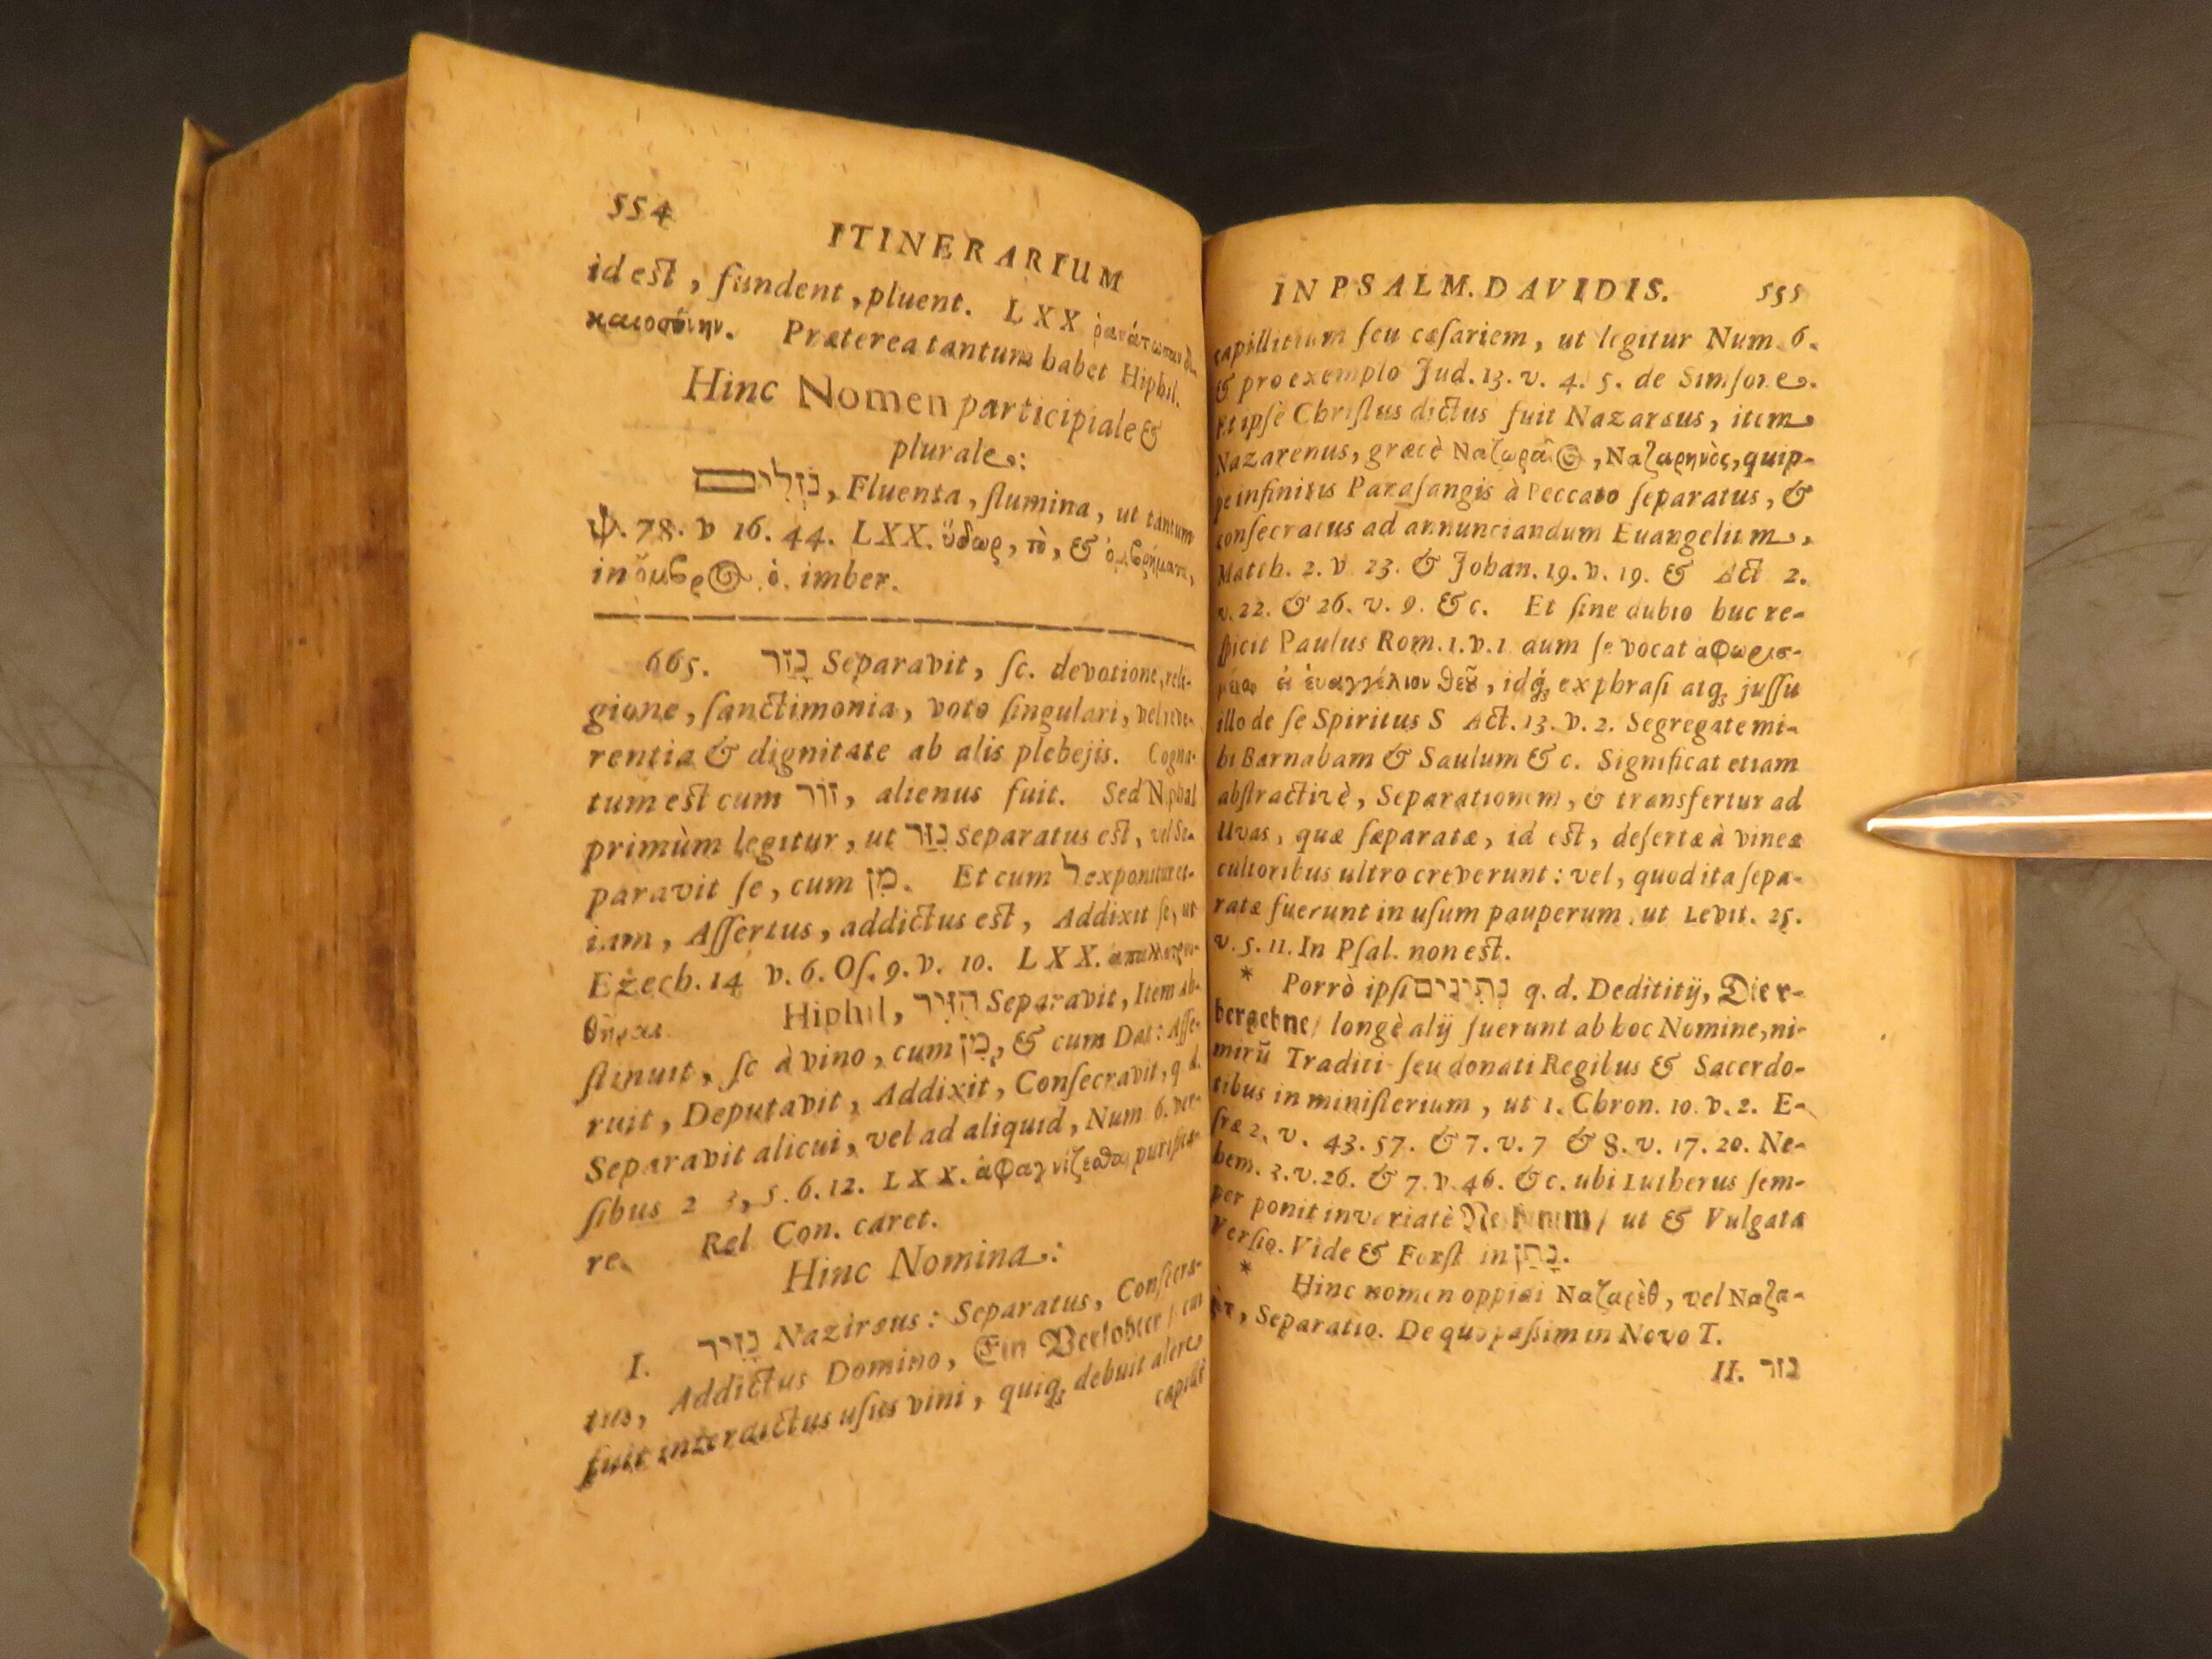 554
ITINERARIUM
id est, fundent, pluent. LXX
Præterea tantum habet Hiphil.
Hinc Nomen participiale &
plurale:
נֹזְלִים, Fluenta, flumina, ut tantum
ψ. 78. v 16. 44. LXX. ὕδωρ, τὸ, &
in ὄμβρος ὁ. imber.
665. נָזַר Separavit, ſc. devotione, reli-
gione, ſanctimonia, voto ſingulari, vel reve-
rentia & dignitate ab aliis plebejis. Cogna-
tum est cum זוּר, alienus fuit. Sed Niphal
primùm legitur, ut נִזַּר Separatus est, vel Se-
paravit ſe, cum מִן. Et cum ל exponitur et-
iam, Aſſertus, addictus est, Addixit ſe, ut
Ezech. 14 v. 6. Oſ. 9. v. 10. LXX.
Hiphil, הִזִּיר Separavit, Item ab-
ſtinuit, ſc à vino, cum מִן, & cum Dat: Aſſe-
ruit, Deputavit, Addixit, Conſecravit, q d.
Separavit alicui, vel ad aliquid, Num 6. ver-
ſibus 2 3, 5. 6. 12. LXX. ἀφαγνίζεσθαι purifica-
re. Rel Con. caret.
Hinc Nomina:
I. נָזִיר Naziræus: Separatus, Conſecra-
tus, Addictus Domino, Ein Verlobter / cui
fuit interdictus uſus vini, quiq; debuit alere
capilli
IN PSALM. DAVIDIS. 555
capillitium ſeu cæſariem, ut legitur Num. 6.
& pro exemplo Jud. 13. v. 4. 5. de Simſone.
Et ipſe Chriſtus dictus fuit Nazaræus, item
Nazarenus, græcè Ναζωραῖος, Ναζαρηνὸς, quip-
pe infinitis Paraſangis à Peccato ſeparatus, &
conſecratus ad annunciandum Euangelium,
Matth. 2. v 23. & Johan. 19. v. 19. & Act 2.
v. 22. & 26. v. 9. &c. Et ſine dubio huc re-
ſpicit Paulus Rom. 1. v. 1 dum ſe vocat ἀφωρισ-
μένον εἰς ἐυαγγέλιον Θεοῦ, idq; ex phraſi atq; juſſu
illo de ſe Spiritus S Act. 13. v. 2. Segregate mi-
hi Barnabam & Saulum &c. Significat etiam
abſtractivè, Separationem, & transfertur ad
Uvas, quæ ſæparatæ, id est, deſertæ à vineæ
cultoribus ultro creverunt: vel, quod ita ſepa-
ratæ fuerunt in uſum pauperum, ut Levit. 25.
v. 5. 11. In Pſal. non est.
* Porrò ipſi נְתִינִים q. d. Dedititij, Die er-
bergebne / longè alij fuerunt ab hoc Nomine, ni-
mirũ Traditi ſeu donati Regibus & Sacerdo-
tibus in miniſterium, ut 1. Chron. 10. v. 2. E-
ſræ 2. v. 43. 57. & 7. v. 7 & 8. v. 17. 20. Ne-
hem. 3. v. 26. & 7. v. 46. &c. ubi Lutherus ſem-
per ponit invariatè / ut & Vulgata
Verſio. Vide & Forſt in נָתַן.
* Hinc nomen oppidi Ναζαρὲθ, vel Ναζα-
ρὲτ, Separatio. De quo paſſim in Novo T.
II. נזר